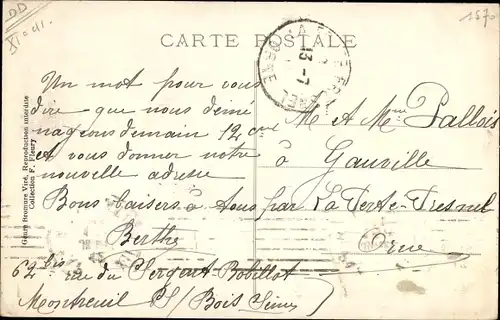 DD
XI a 41.
1570
CARTE POSTALE
13-7
ORNE
Genre Bromure Viré, Reproduction interdite
Collection F. Fleury
Un mot pour vous
dire que nous démé
nageons demain 12 crt
et vous donner notre
nouvelle adresse
Bons baisers à tous
Berthe
62 bis rue du Sergent-Bobillot
Montreuil s/ Bois Seine
M. et Mme Pallois
à Gauville
par La Ferté-Fresnel
Orne